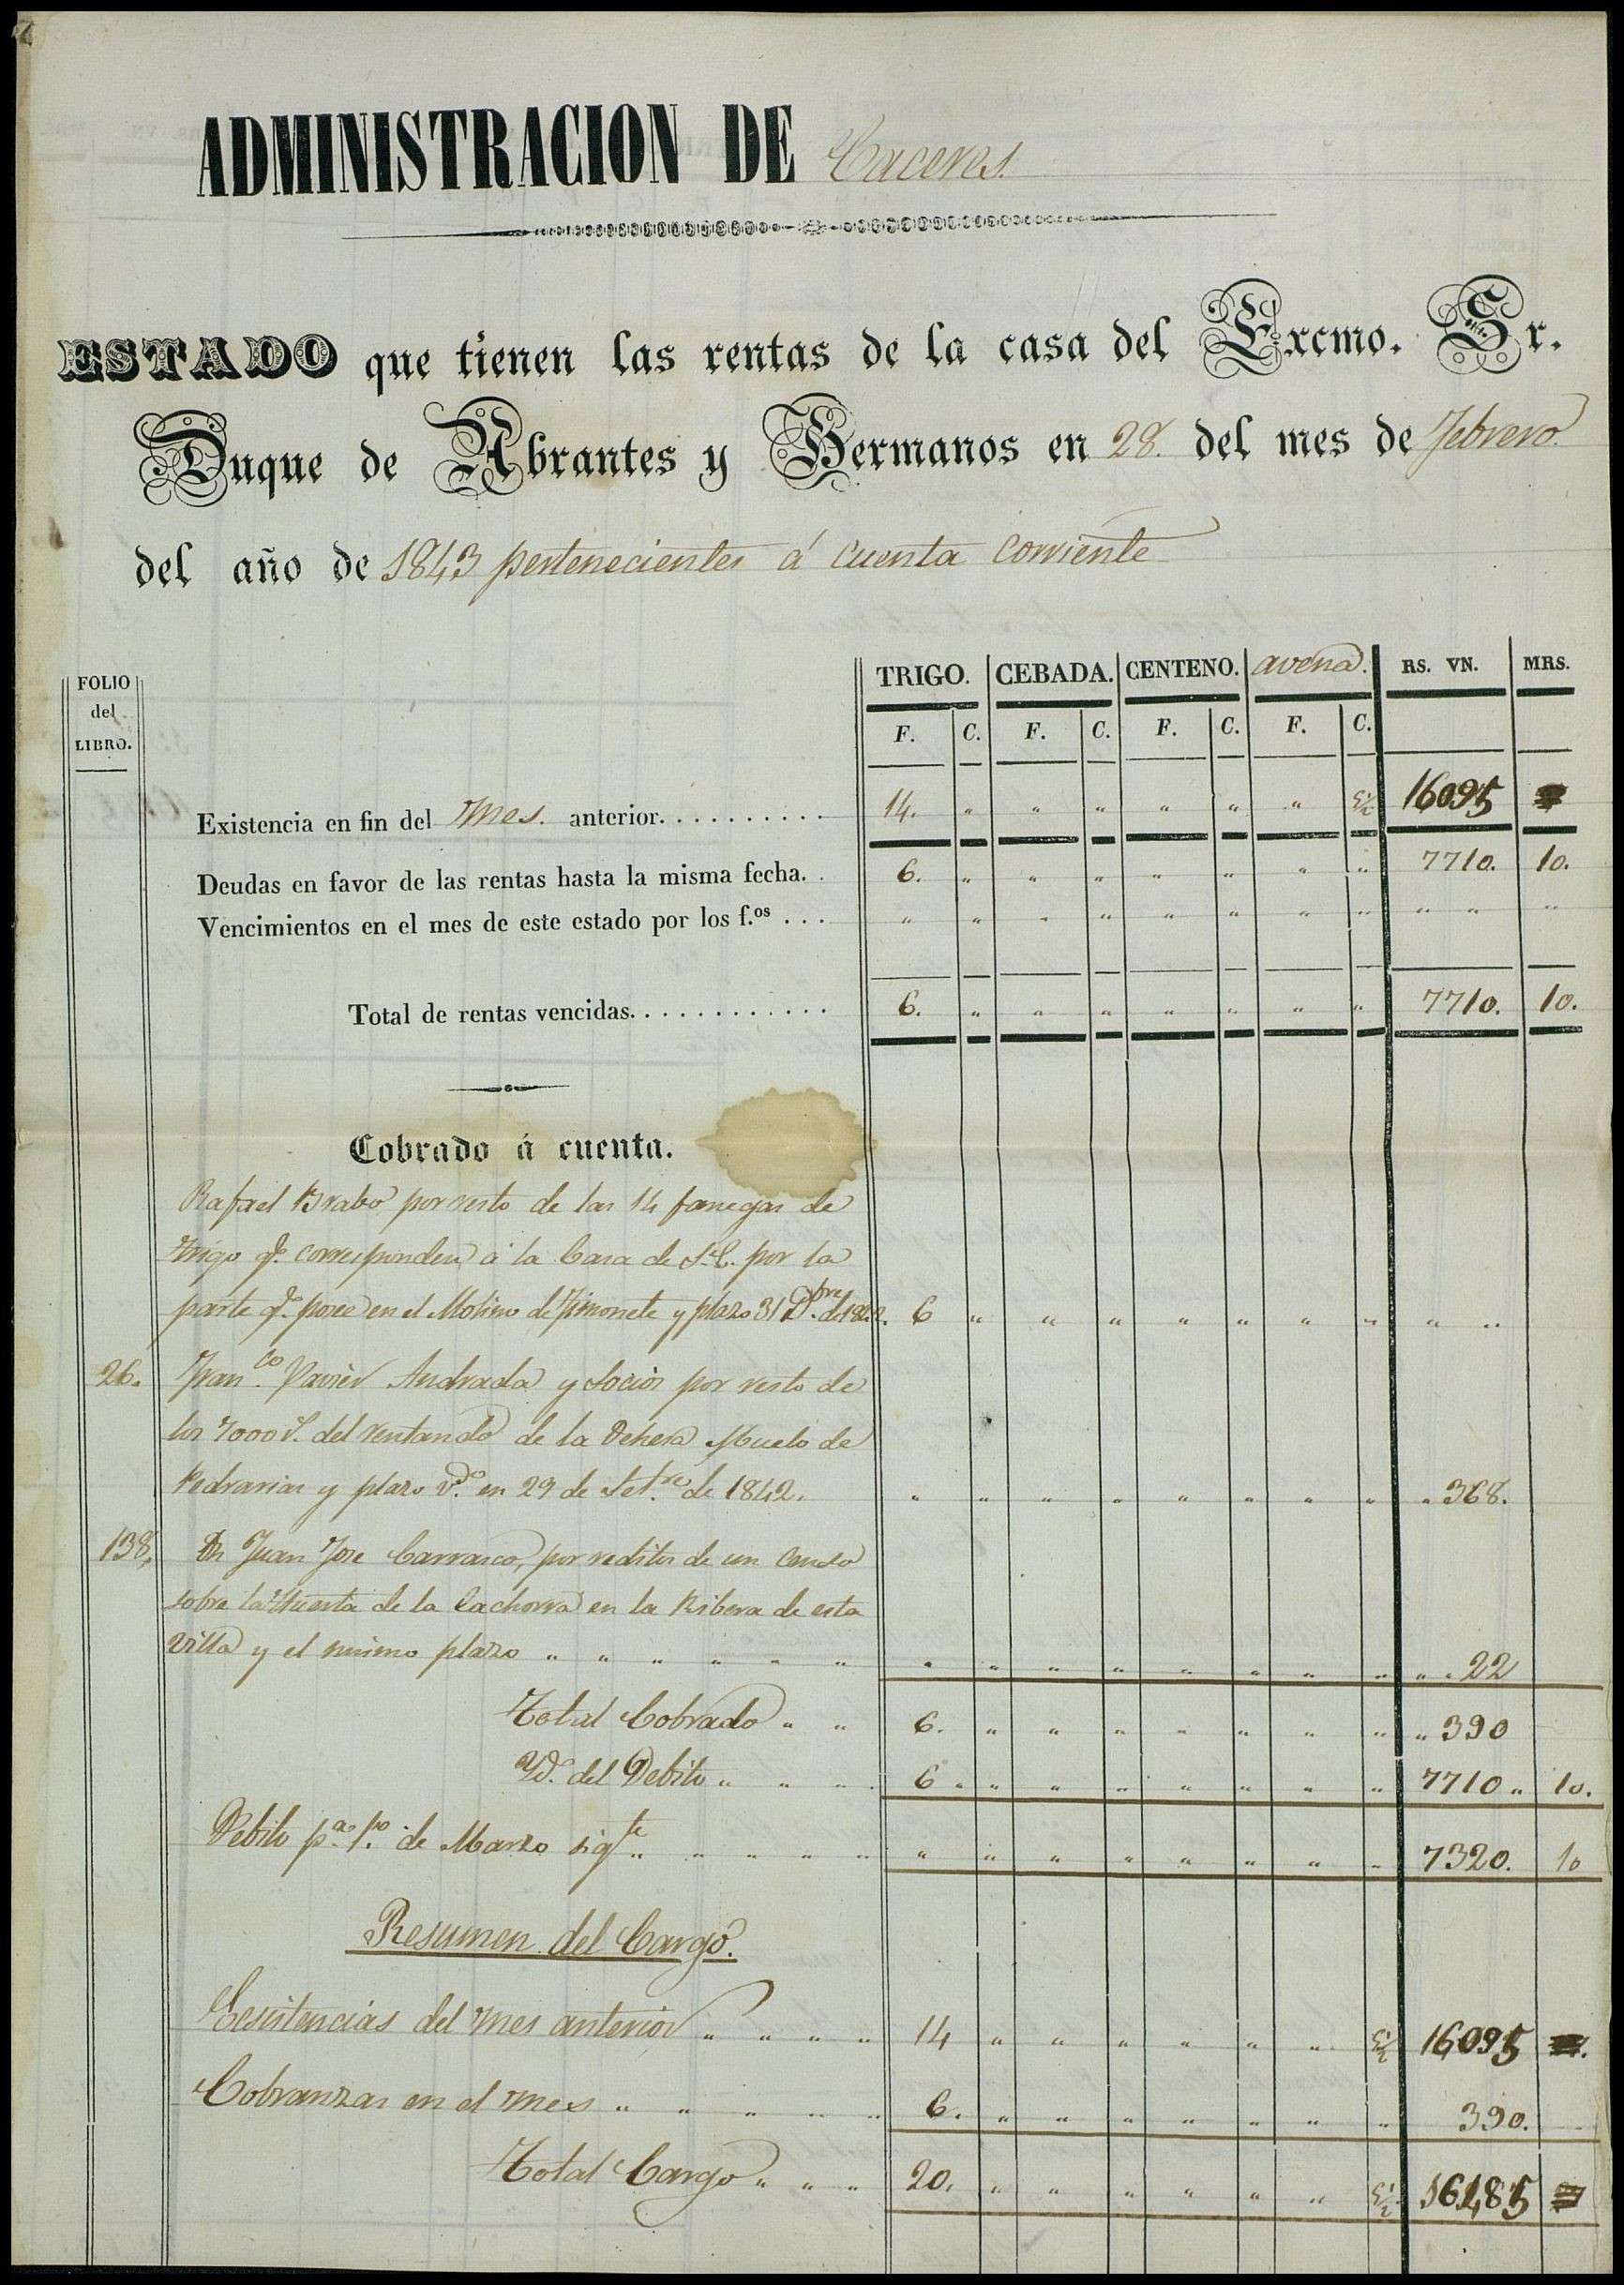 ADMINISTRACION DE Caceres.
ESTADO que tienen las rentas de la casa del Excmo. Sr.
Duque de Abrantes y Hermanos en 28. del mes de Febrero.
del año de 1843 pertenecientes á cuenta corriente
FOLIO
del
LIBRO.
TRIGO. CEBADA. CENTENO. avena. RS. VN. MRS.
F. C. F. C. F. C. F. C.
Existencia en fin del mes. anterior. . . . . . . . . . . 14. " " " " " " 5½ 16095
Deudas en favor de las rentas hasta la misma fecha. . 6. " " " " " " " 7710. 10.
Vencimientos en el mes de este estado por los f.os . . . " " " " " " " " " " "
Total de rentas vencidas. . . . . . . . . . . . . 6. " " " " " " " 7710. 10.
Cobrado á cuenta.
Rafael Brabo por resto de las 14 fanegas de
trigo q.e corresponden á la Casa de S.E. por la
parte q.e posee en el Molino de Jimonete y plazo 31 D.bre de 1842. 6 " " " " " " " " "
26. Fran.co Xavier Andrada y Socios por resto de
los 7000 r.s del rentando de la Dehesa Suelo de
Pedrarias y plazo v.do en 29 de Set.re de 1842. " " " " " " " " " 368.
138, Dn Juan Jose Carrasco, por reditos de un Censo
sobre la Huerta de la Cachorra en la Ribera de esta
Villa y el mismo plazo " " " " " " " " " " " " " " " " 22
Total Cobrado " " 6. " " " " " " " " 390
Yd. del Debito " " " 6 " " " " " " " " 7710 " 10.
Debito p.a 1.o de Marzo sig.te " " " " " " " " " " " " " 7320. 10
Resumen del Cargo.
Ecsistencias del mes anterior " " " " 14 " " " " " " 5½ 16,095
Cobranzas en el mes " " " " " 6. " " " " " " " 390.
Total Cargo " " " 20. " " " " " " 5½ 16,485